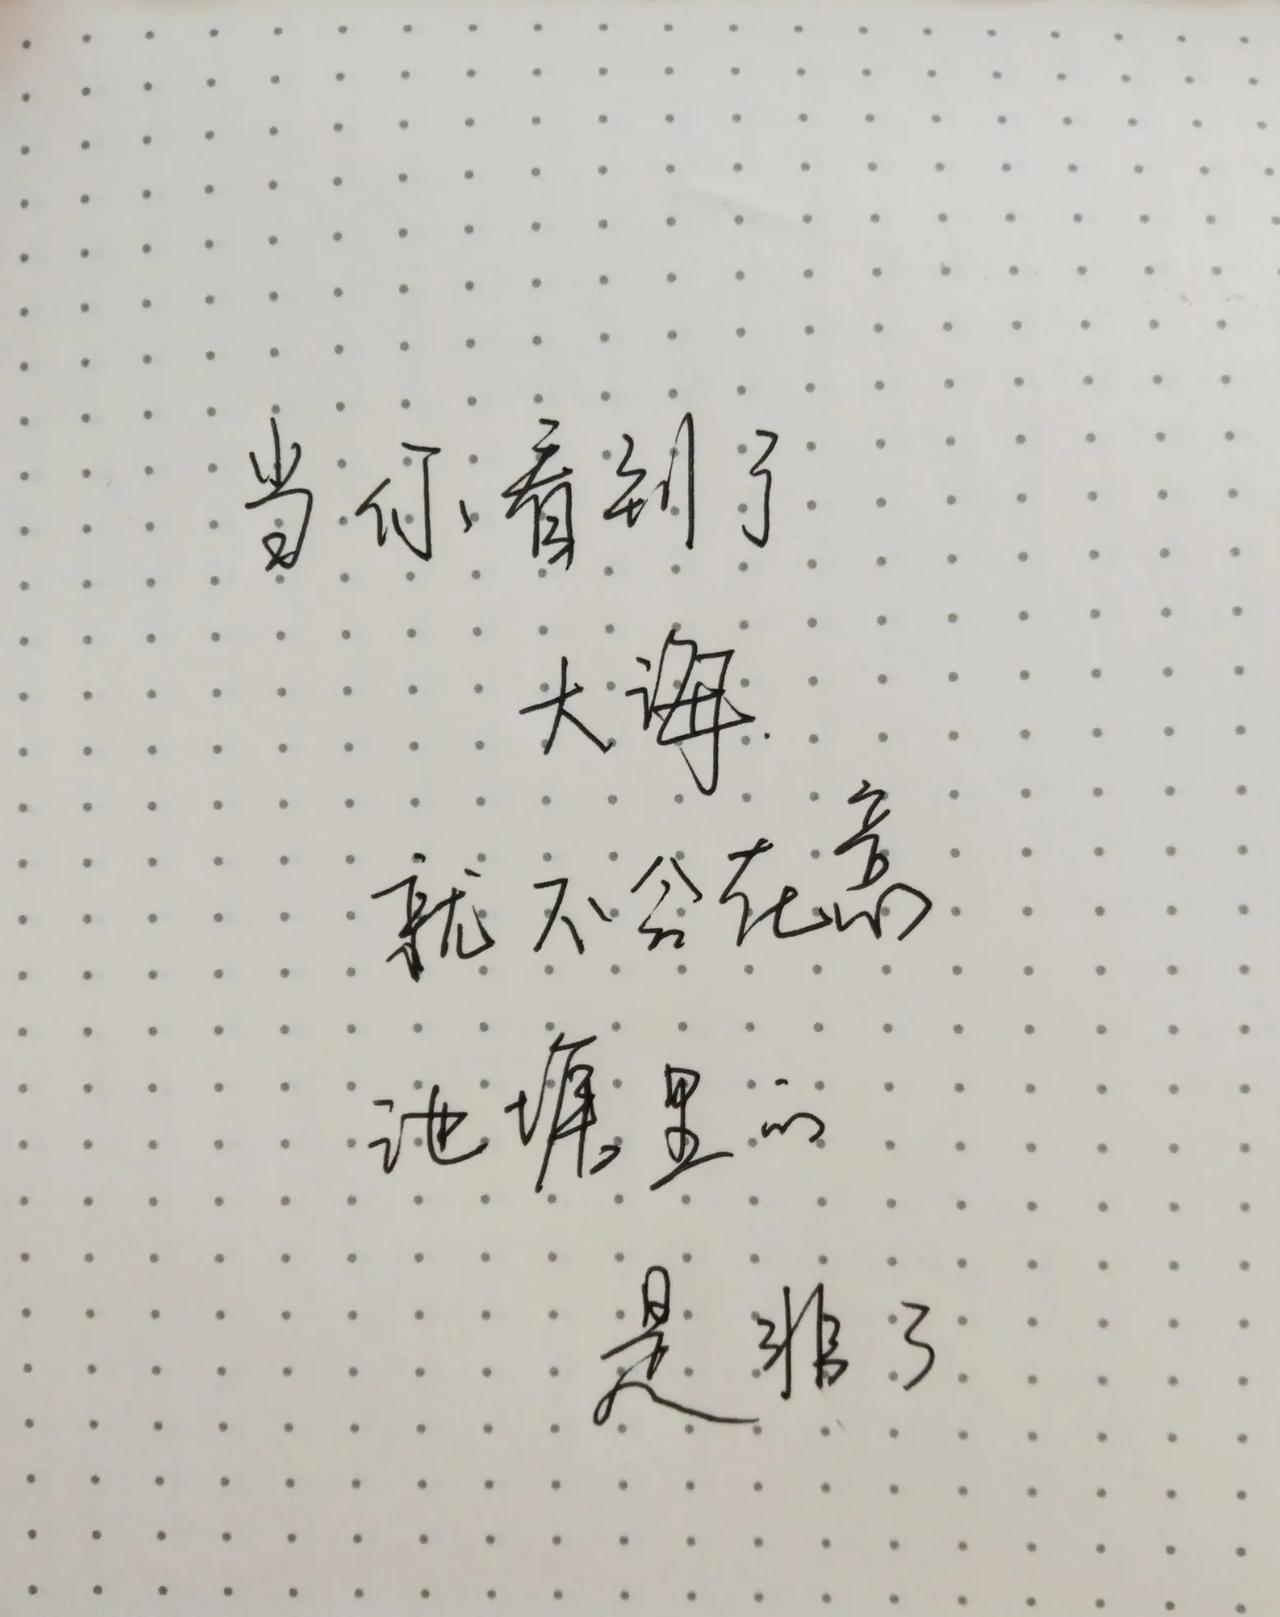 当你看到了
大海
就不会在意
池塘里的
是非了